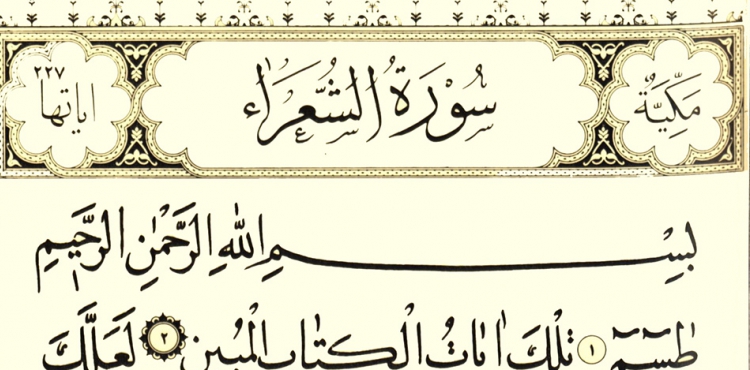 مَكِّيَّةٌ
سُوْرَةُ الشُّعَرَاءِ
اياتها ٢٢٧
بِسْمِ اللّٰهِ الرَّحْمٰنِ الرَّحِيمِ
طٰسٓمٓ ١ تِلْكَ اٰيَاتُ الْكِتَابِ الْمُبِينِ ٢ لَعَلَّكَ